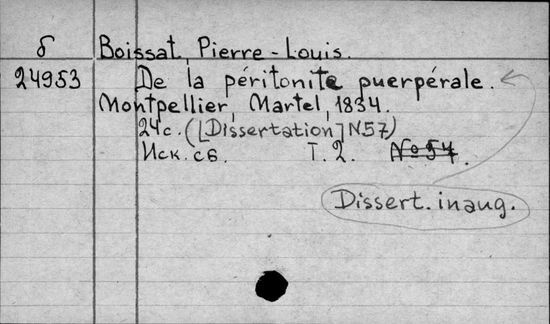 б Boissat, Pierre-Louis.
24953 De la péritonite puerpérale.
Montpellier, Martel, 1834.
24 с. ([Dissertation] N57)
Иск. сб. Т. 2. № 54.
Dissert. inaug.